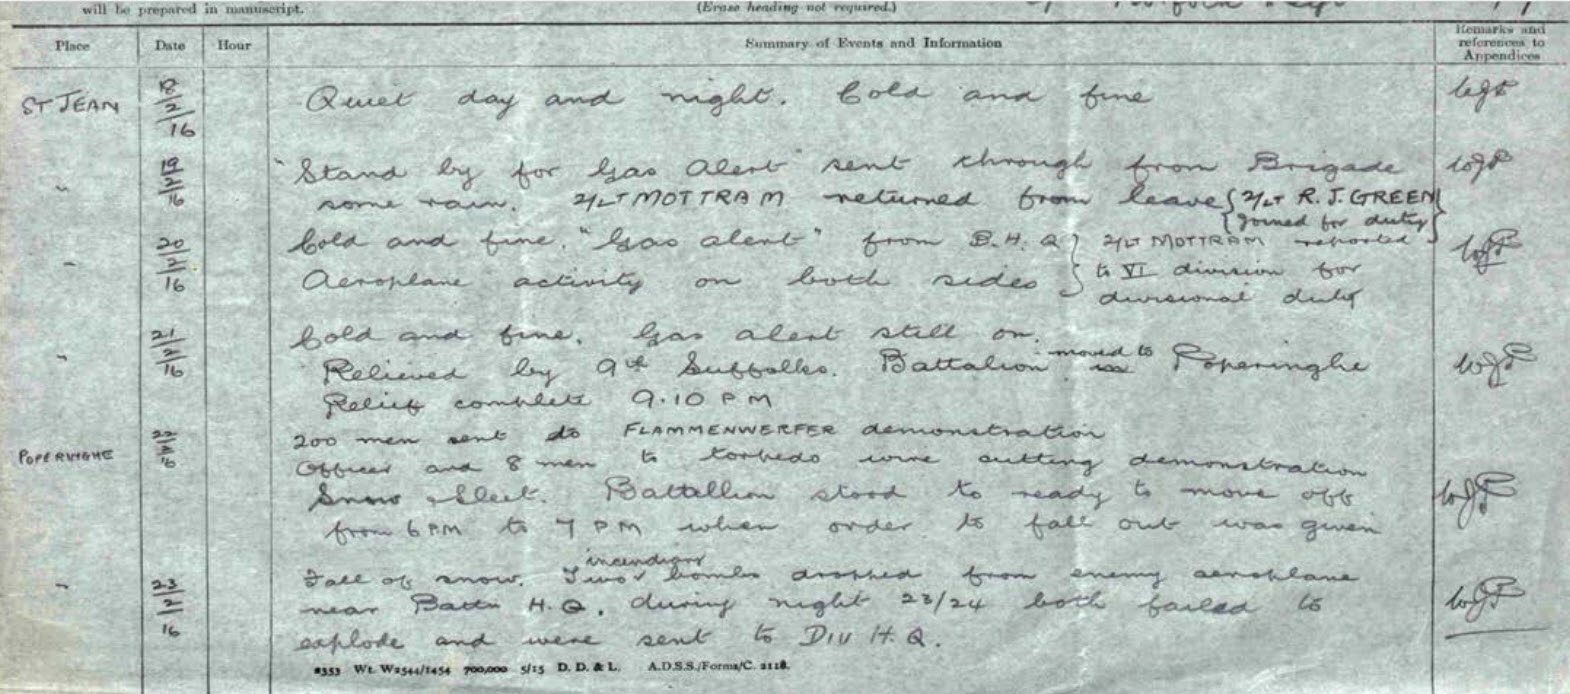 will be prepared in manuscript.
(Erase heading not required.)
Place Date Hour Summary of Events and Information Remarks and references to Appendices
ST JEAN 18/2/16 Quiet day and night. Cold and fine
" 19/2/16 "Stand by for Gas Alert" sent through from Brigade
some rain. 2/LT MOTTRAM returned from leave {2/LT R. J. GREEN
joined for duty}
" 20/2/16 Cold and fine. "Gas alert" from B.H.Q } 2/LT MOTTRAM reported
Aeroplane activity on both sides } to VI division for
divisional duty
" 21/2/16 Cold and fine. Gas alert still on.
Relieved by 9th Suffolks. Battalion moved to Poperinghe
Relief complete 9.10 PM
POPERINGHE 22/2/16 200 men sent to FLAMMENWERFER demonstration
Officer and 8 men to torpedo wire cutting demonstration
Snow & Sleet. Battallion stood to ready to move off
from 6 PM to 7 PM when order to fall out was given
" 23/2/16 Fall of snow. Two incendiary bombs dropped from enemy aeroplane
near Battn H.Q. during night 23/24 both failed to
explode and were sent to Div H.Q.
2353 Wt. W2544/1454 700,000 5/15 D. D. & L. A.D.S.S./Forms/C. 2118.